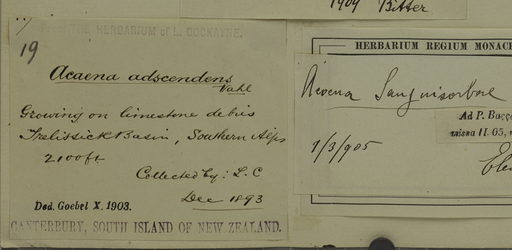 1904 Bitter
From THE HERBARIUM of L. COCKAYNE.
19
Acaena adscendens
Vahl
Growing on limestone debris
Trelissick Basin, Southern Alps
2000ft
Collected by: L. C
Dec 1893
Ded. Goebel X. 1903.
CANTERBURY, SOUTH ISLAND OF NEW ZEALAND.
HERBARIUM REGIUM MONAC
Acaena Sanguisorbae
Ad P. Bu
missa 11.05,
1/3/905